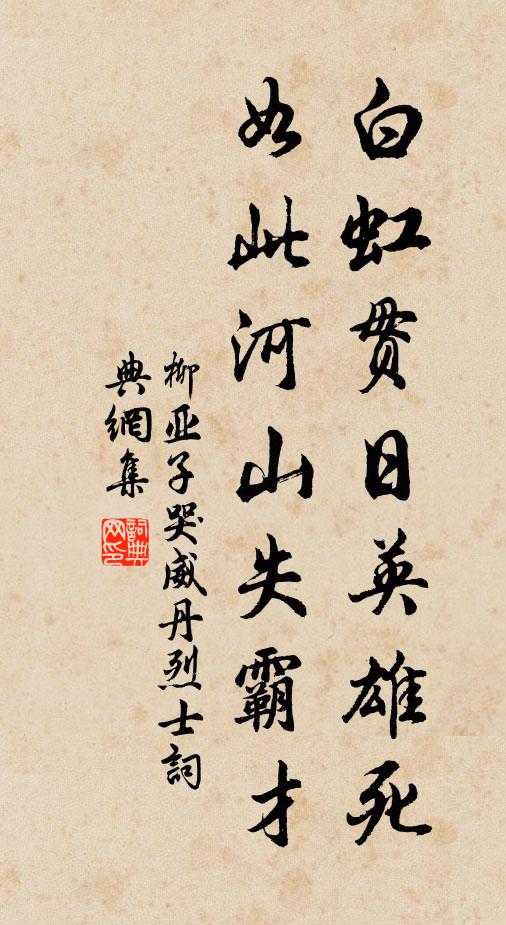 白虹贯日英雄死
如此河山失霸才
柳亚子哭威丹烈士詞
典網集
詞典網印